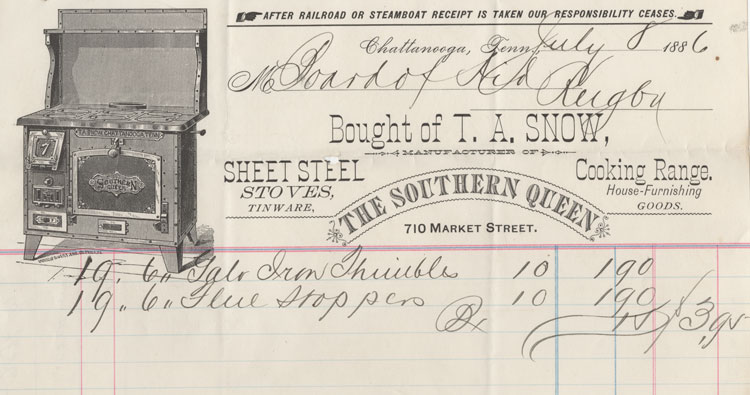 AFTER RAILROAD OR STEAMBOAT RECEIPT IS TAKEN OUR RESPONSIBILITY CEASES.
Chattanooga, Tenn. July 8 1886
M Board of Aid
Rugby
Bought of T. A. SNOW,
MANUFACTURER OF
SHEET STEEL
STOVES,
TINWARE,
THE SOUTHERN QUEEN
710 MARKET STREET.
Cooking Range.
House-Furnishing
GOODS.
T.A. SNOW, CHATTANOOGA TENN.
7
SOUTHERN QUEEN
19. 6" Galv Iron Thimbles 10 190
19. 6" Flue Stoppers 10 190
Bx 15 3,95